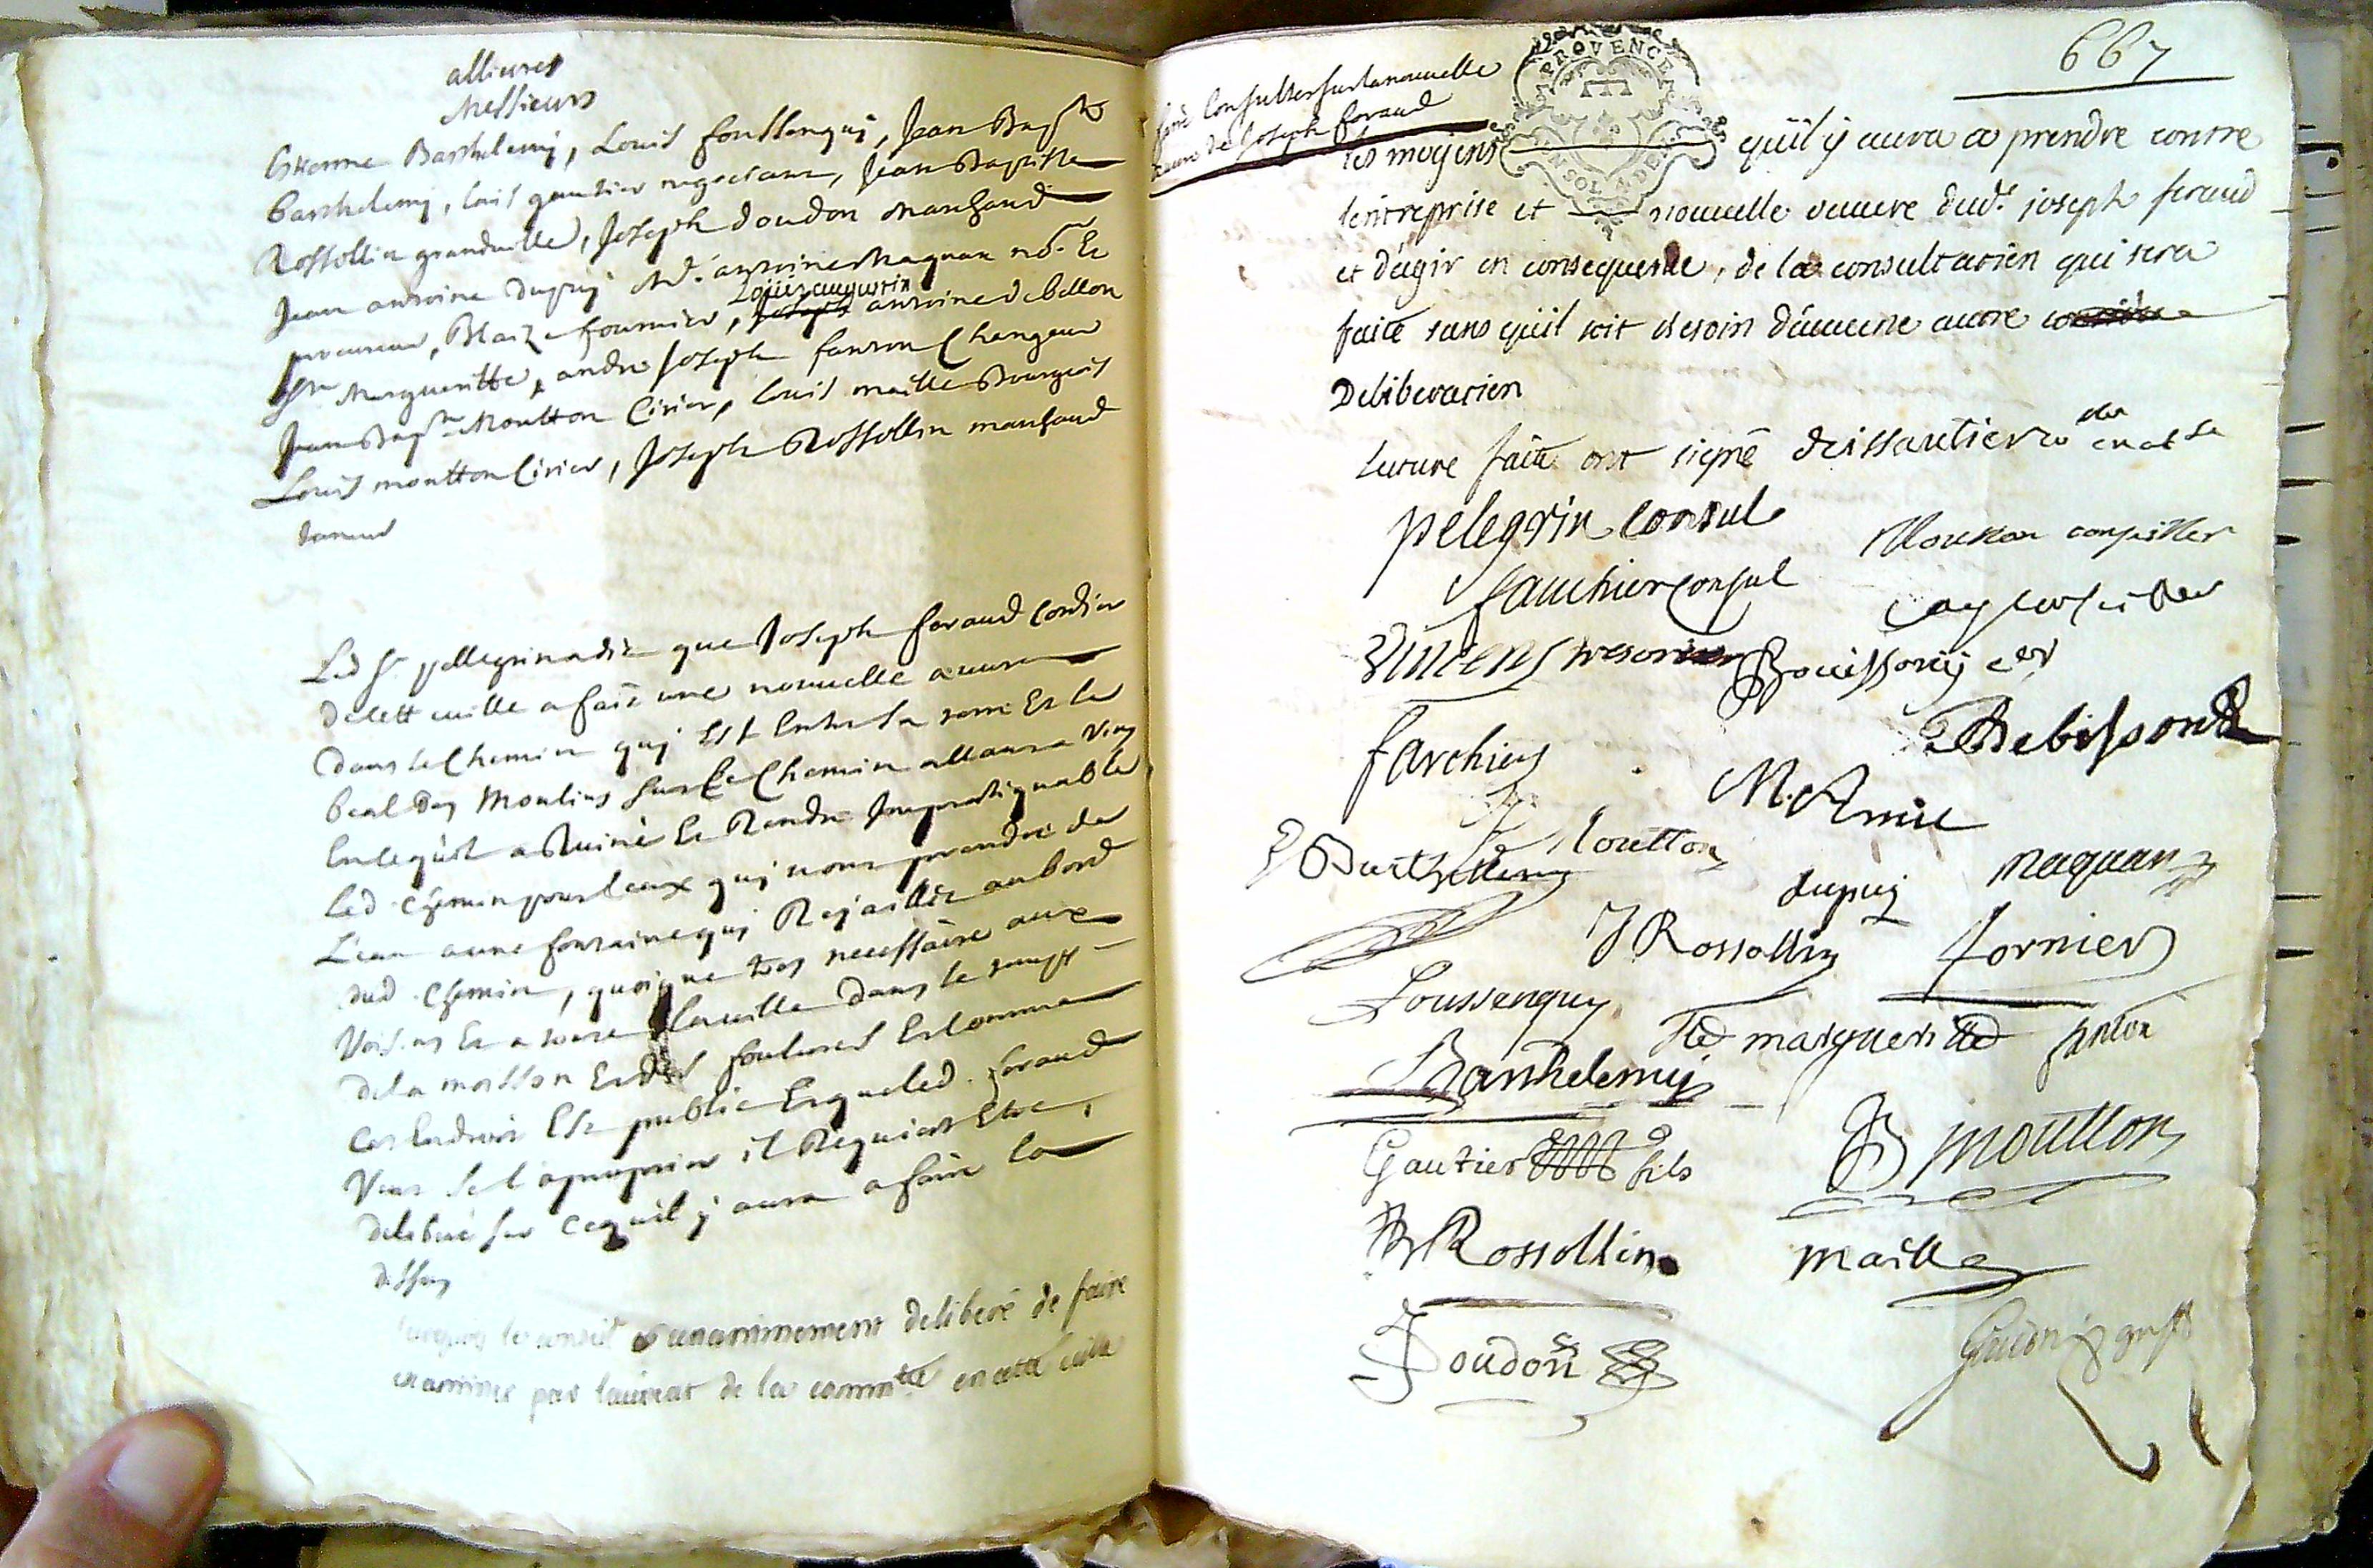 allivres
Messieurs
Estienne Barthelemy, Louis foussenquy, Jean Bapte
barthelemy, Louis gautier negociant, Jean Baptiste
Rossollin grandville, Joseph doudon marchand
Jean antoine dupuy Md. antoine Maquan no.re Et
procureur, Blaize fournier, Louis augustin antoine de bellon
Ste Margueritte, andre Joseph fanton Changeur
Jean Bapte Moutton Cirier, Louis maille Bourgeois
Louis moutton Cirier, Joseph Rossollin marchand
taneur
Led Sr pellegrin a dit que Joseph feraud Cordier
de cette ville a fait une nouvelle œuvre
dans le Chemin quj Est Entre sa terre Et le
beal des Moulins sur le Chemin allant a
En ce qu'il a Ruiné Et Rendu Impratiquable
led. chemin pour Ceux quj vont prendre de
L'eau a une fontaine quj Rejaillit au bord
dud. chemin, quoique tres necessaire aux
Voisins Et a toute la ville dans le temps
de la moisson Et des foulures Et Comme
Cet Endroit Est public Et que led. feraud
Veut se l'aproprier il Requiert Etre
deliberé sur Ce quil y aura a faire la
dessus
surquoy le conseil a unanimement deliberé de faire
examiner par lavocat de la commté en cette ville
667
faire Consulter sur la nouvelle
œuvre de Joseph feraud
les moyens qu'il y aura a prendre contre
lentreprise et nouvelle œuvre dud. joseph feraud
et d'agir en consequence, de la consultation qui sera
faite sans qu'il soit besoin d'aucune autre
Deliberation
Lecture faite ont signé deissautier
pelegrin Consul
Moutton conseiller
fauchier Consul
Vincens tresorier
Bouissony cer
farchier
Debisson
M. Amic
Moutton
Barthelemy
dupuy
maquan
J Rossollin
fornier
foussenquy
Ste margueritte
fanton
Barthelemy
Gautier fils
JB moutton
JB Rossollin
maille
J Doudon